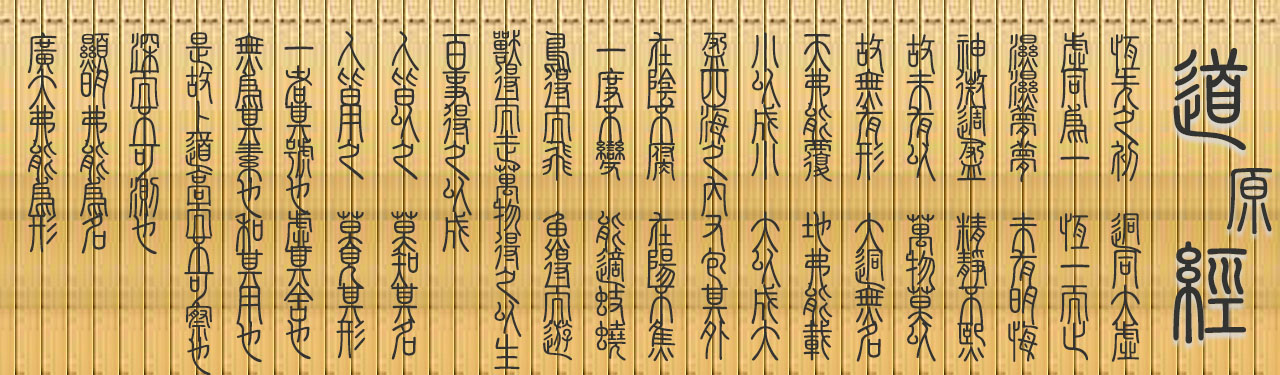 道原經
恆先之初 迵同大虛
虛同為一 恆一而止
濕濕夢夢 未有明晦
神微週盈 精靜不熙
故未有以 萬物莫以
故無有形 大迵無名
天弗能覆 地弗能載
小以成小 大以成大
盈四海之內 又包其外
在陰不腐 在陽不焦
一度不變 能適蚑蟯
鳥得而飛 魚得而遊
獸得而走萬物得之以生
百事得之以成
人皆以之 莫知其名
人皆用之 莫見其形
一者其號也虛其舍也
無為其素也和其用也
是故上道高而不可察也
深而不可測也
顯明弗能為名
廣大弗能為形